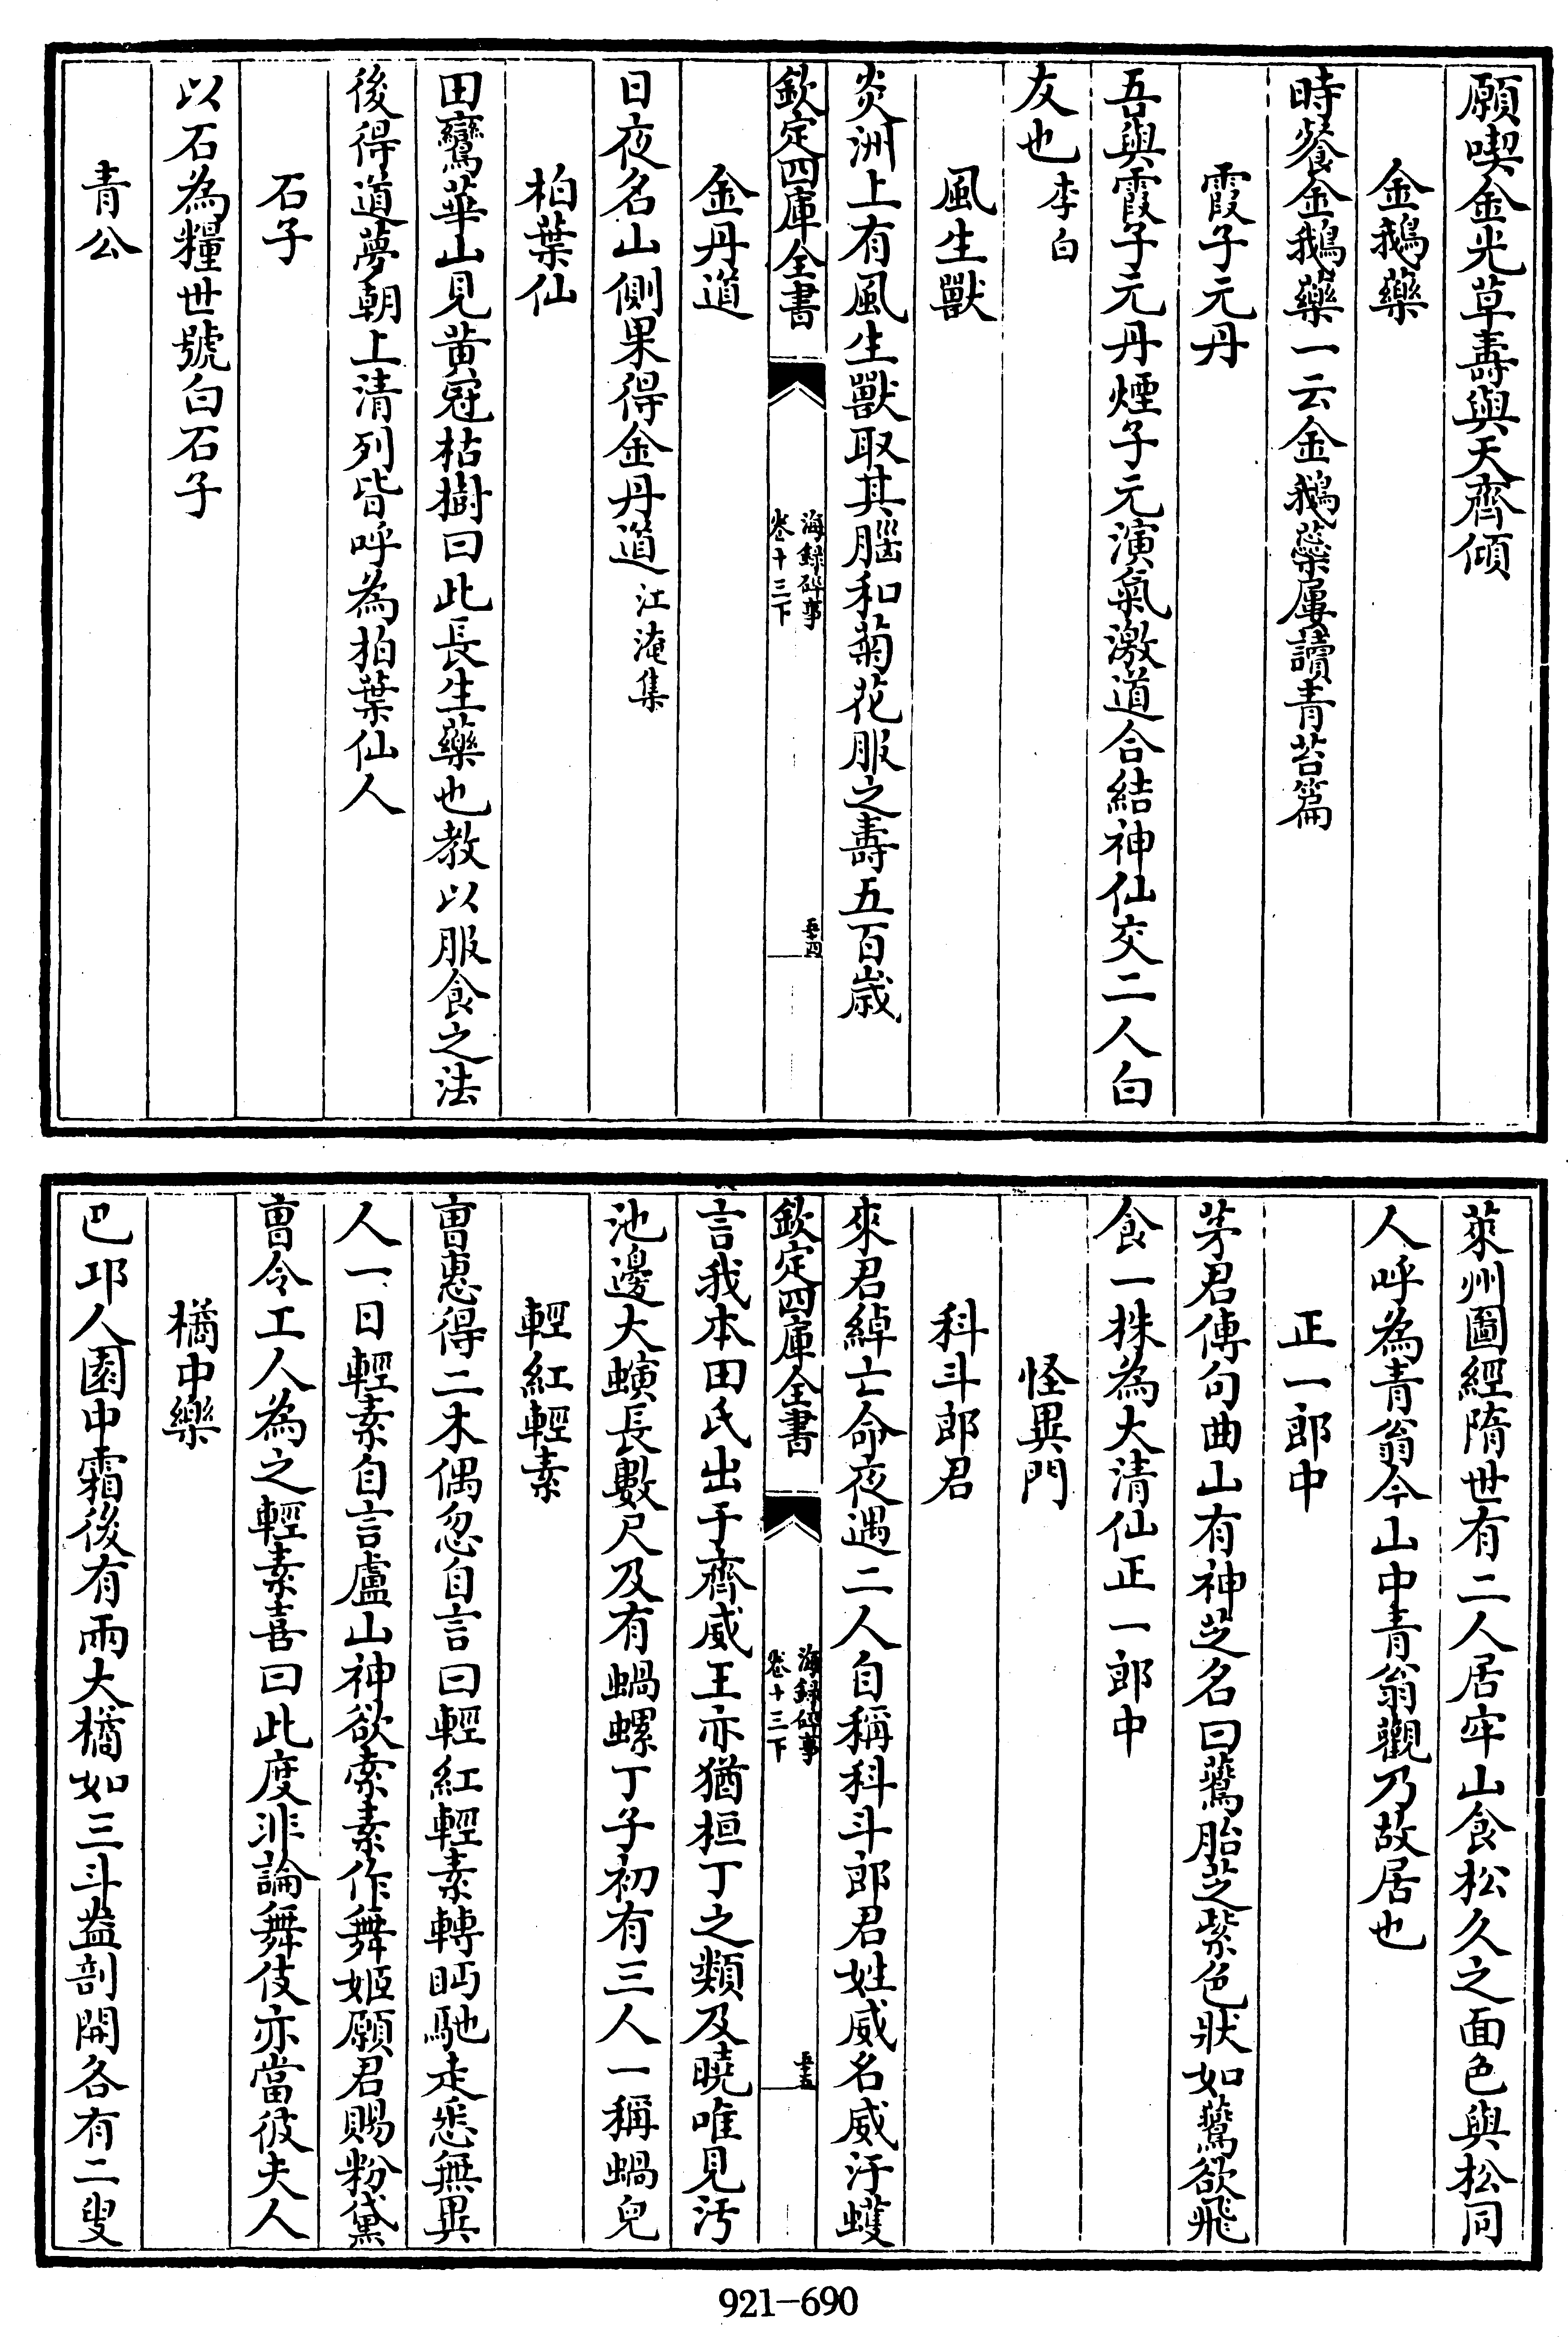 願喫金光草壽與天齊傾
金鵝藥
時餐金鵝藥一云金鵝蘂屢讀青苔篇
霞子元丹
吾與霞子元丹煙子元演氣激道合結神仙交二人白
友也李白
風生獸
炎洲上有風生獸取其腦和菊花服之壽五百歲
欽定四庫全書
海録碎事
卷十三下
五十四
金丹道
日夜名山側果得金丹道江淹集
柏葉仙
田鸞華山見黄冠枯樹曰此長生藥也教以服食之法
後得道夢朝上清列皆呼為柏葉仙人
石子
以石為糧世號白石子
青公
萊州圖經隋世有二人居牢山食松久之面色與松同
人呼為青翁今山中青翁觀乃故居也
正一郎中
茅君傳句曲山有神芝名曰鷰胎芝紫色狀如鷰欲飛
食一株為大清仙正一郎中
怪異門
科斗郎君
來君綽亡命夜遇二人自稱科斗郎君姓威名威汙蠖
欽定四庫全書
海録碎事
卷十三下
五十五
言我本田氏出于齊威王亦猶桓丁之類及曉唯見汚
池邊大螾長數尺及有蝸螺丁子初有三人一稱蝸兒
輕紅輕素
曹惠得二木偶忽自言曰輕紅輕素轉眄馳走悉無異
人一日輕素自言盧山神欲索素作舞姬願君賜粉黛
曹令工人為之輕素喜曰此度非論舞伎亦當彼夫人
橘中樂
巴邛人園中霜後有兩大橘如三斗盎剖開各有二叟
921-690